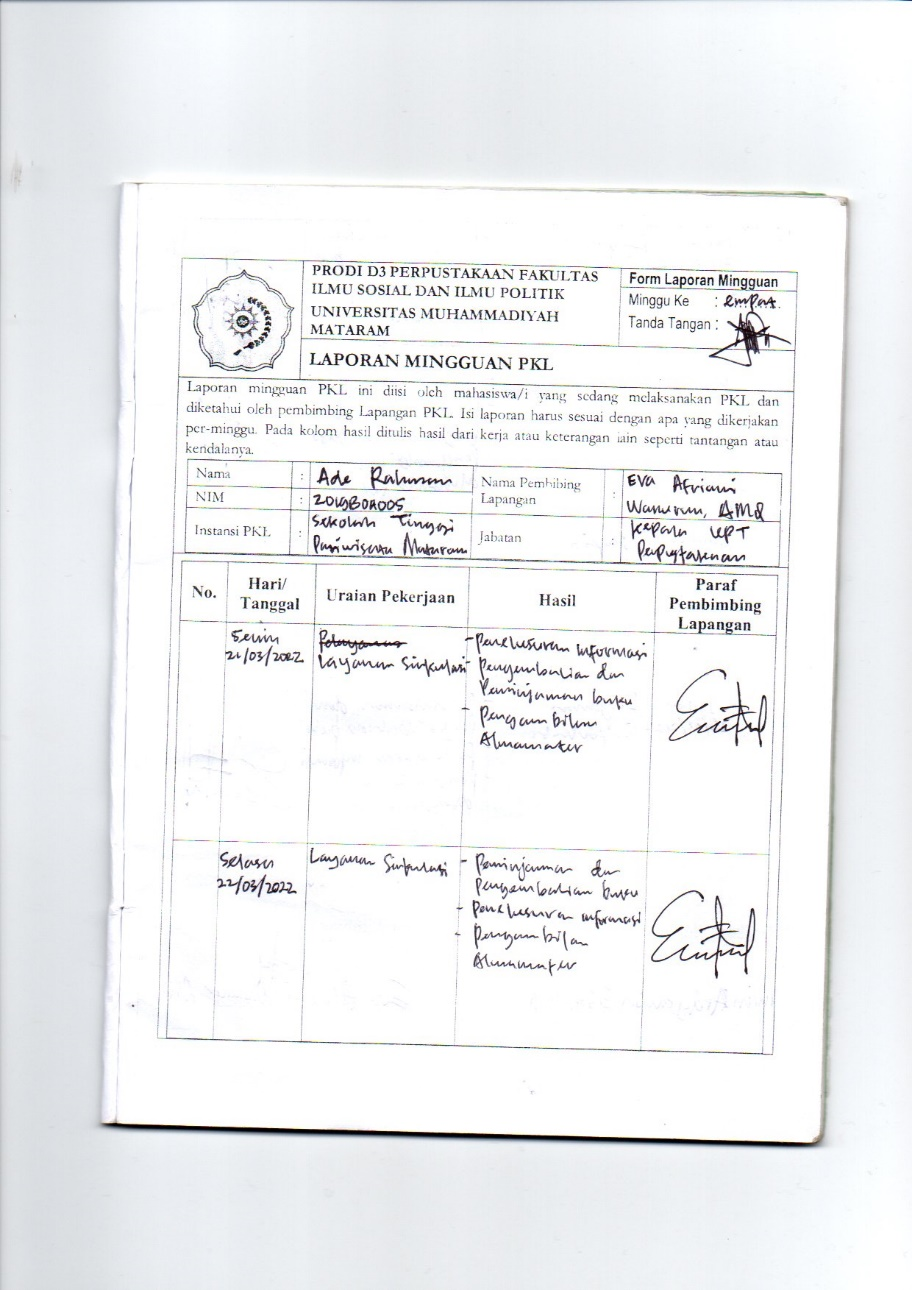 PRODI D3 PERPUSTAKAAN FAKULTAS
ILMU SOSIAL DAN ILMU POLITIK
UNIVERSITAS MUHAMMADIYAH
MATARAM
LAPORAN MINGGUAN PKL
Form Laporan Mingguan
Minggu Ke : empat
Tanda Tangan :
Laporan mingguan PKL ini diisi oleh mahasiswa/i yang sedang melaksanakan PKL dan
diketahui oleh pembimbing Lapangan PKL. Isi laporan harus sesuai dengan apa yang dikerjakan
per-minggu. Pada kolom hasil ditulis hasil dari kerja atau keterangan lain seperti tantangan atau
kendalanya.
Nama : Ade Rahman
NIM : 2019B0A005
Instansi PKL : Sekolah Tinggi
Pariwisata Mataram
Nama Pembibing
Lapangan : Eva Afriani
Jabatan : Kepala UPT
Perpustakaan
No.
Hari/
Tanggal
Uraian Pekerjaan
Hasil
Paraf
Pembimbing
Lapangan
Senin
21/03/2022
Layanan Sirkulasi
- Penelusuran informasi
- Pengembalian dan
Peminjaman buku
- Pengambilan
Almamater
Selasa
22/03/2022
Layanan Sirkulasi
- Peminjaman dan
Pengembalian buku
- Penelusuran informasi
- Pengambilan
Almamater